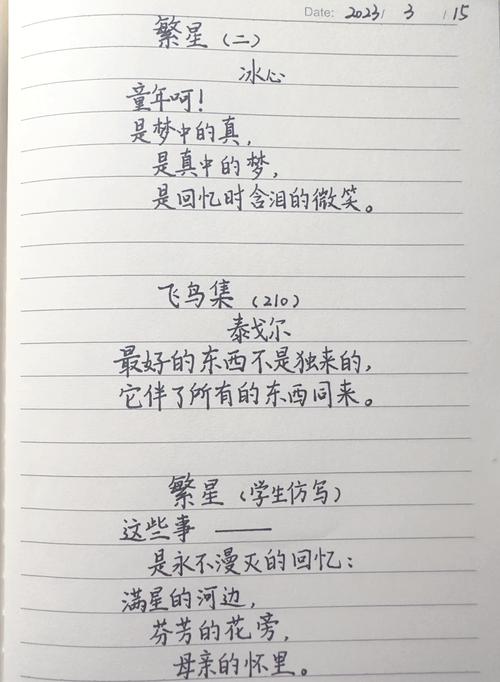 Date: 2023/ 3 / 15
繁星（二）
冰心
童年呵！
是梦中的真，
是真中的梦，
是回忆时含泪的微笑。
飞鸟集（210）
泰戈尔
最好的东西不是独来的，
它伴了所有的东西同来。
繁星（学生仿写）
这些事 ——
是永不漫灭的回忆：
满星的河边，
芬芳的花旁，
母亲的怀里。